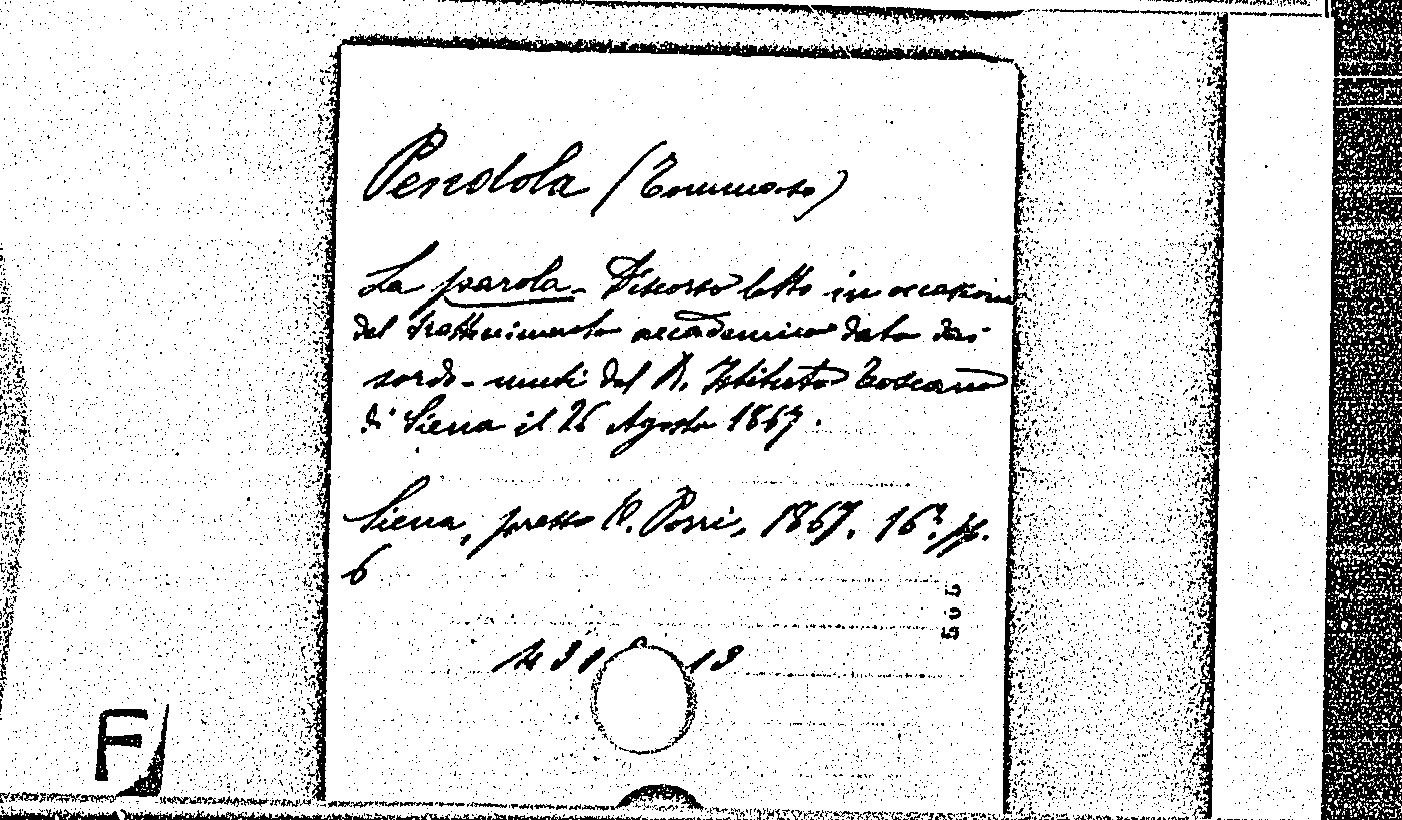 Pendola (Tommaso)
La parola - Discorso letto in occasione
del trattenimento accademico dato dai
sordo-muti del R. Istituto Toscano
di Siena il 26 Agosto 1867.
Siena, presso O. Porri, 1867. 16º. pp.
6
505
431 13
F